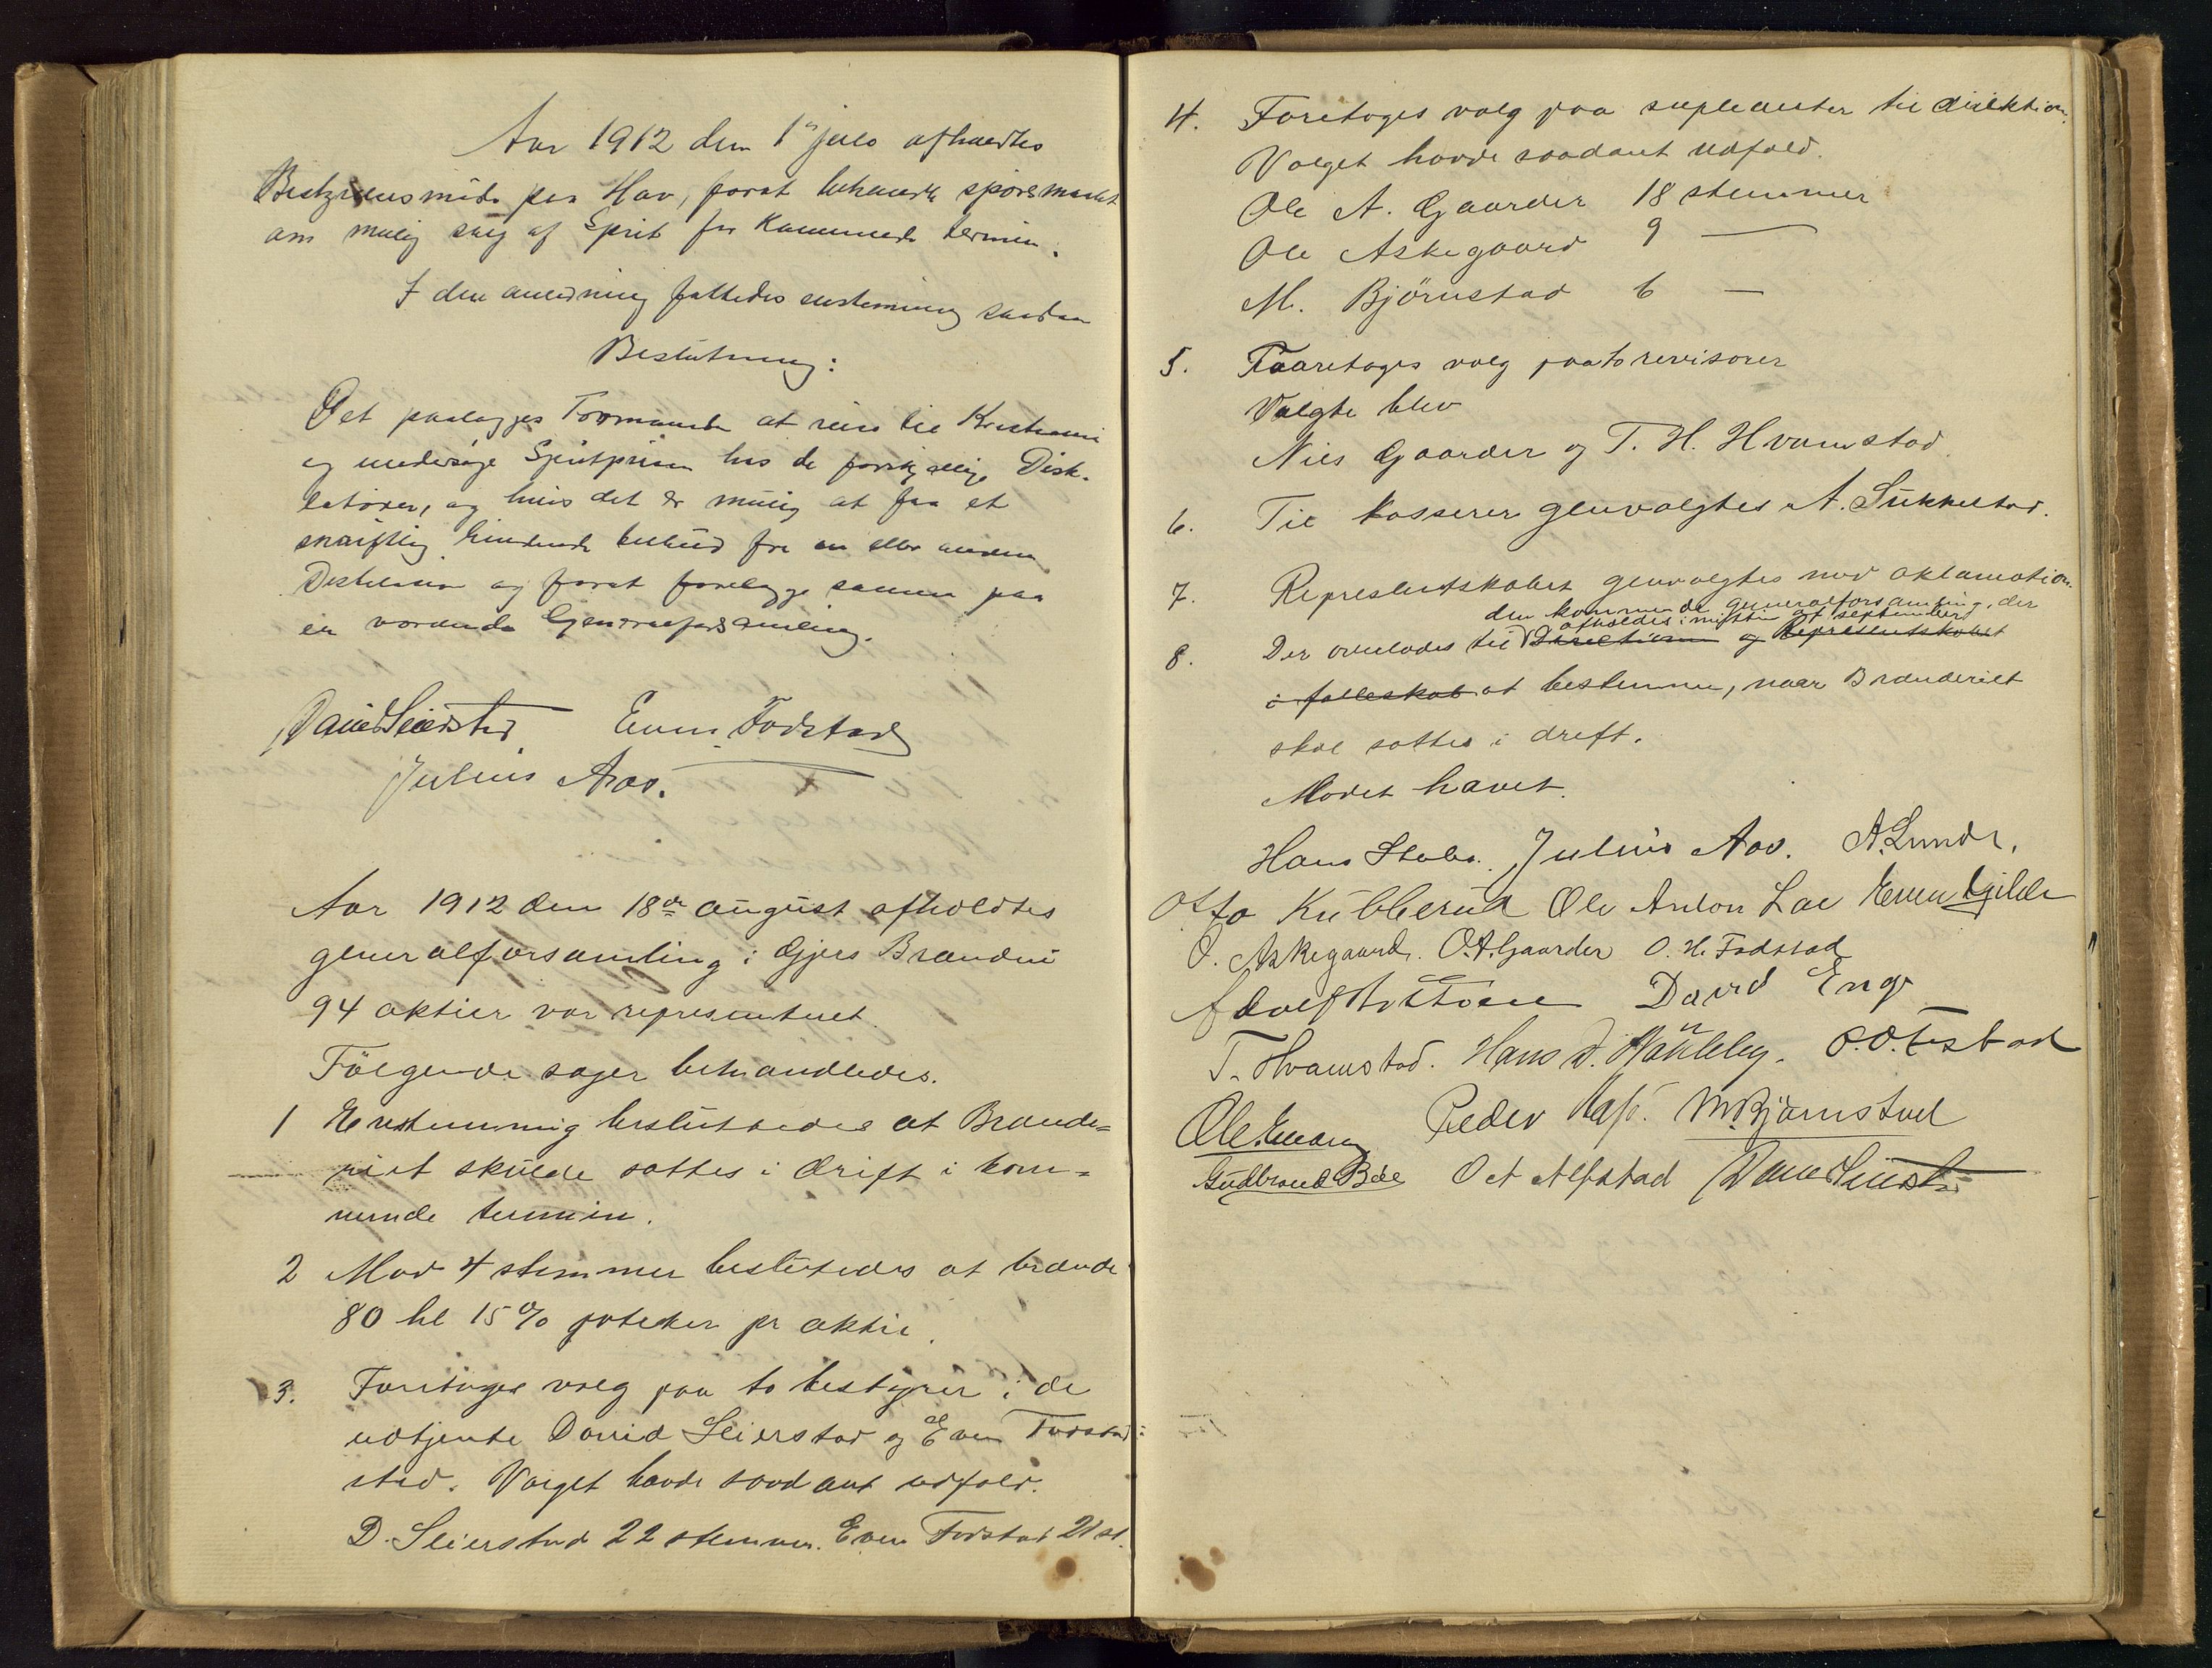 Aar 1912 den 1ste julo afholdtes
Bestyrelsesmöde paa Hov, forat behandle spörsmaalet
om mulig salg af Sprit for kommende termin.
I den anledning fattedes enstemmig saadan
Beslutning:
Det paalægges Formanden at reise til Kristiania
og undersöge Spritprisen hos de forskjellige Distil-
latörer, og hvis det er mulig at faa et
skriftlig bindende tilbud fra en eller anden
Destilatör og forat forelægge samme paa
en vordende Generalforsamling.
David Seierstad Even Fodstad
Julius Aas.
Aar 1912 den 18de august afholdtes
generalforsamling i Gjers Brænderi
94 aktier var representeret.
Fölgende sager behandledes.
1 Enstemmig besluttedes at Brænde=
riet skulde sættes i drift i kom=
mende termin.
2 Mod 4 stemmer beslutedes at brænde
80 hl 15% poteter pr aktie.
3. Foretoges valg paa to bestyrer i de
udtjente David Seierstad og Even Fodstad
sted. Valget havde saadant udfald.
D. Seierstad 22 stemmer. Even Fodstad 21 st.
4. Foretoges valg paa supleanter til direktion.
Valget havde saadant udfald.
Ole A. Gaarder 18 stemmer
Ole Askegaard 9 —
M. Björnstad 6 —
5. Foaretoges valg paa to revisorer
Valgte blev
Nils Gaarder og T. H. Hvamstad
6. Til kasserer genvalgtes A. Sukkestad.
7. Representskabet genvalgtes med aklamation.
den kommende generalforsamling, der
afholdes i midten af september
8. Der overlodes til Direktionen og Representskabet
i fælleskab at bestemme, naar Brænderiet
skal sættes i drift.
Mödet hævet.
Hans Stabo. Julius Aas. A. Lunde,
Otto Kubberud Ole Anton Lae Even Gilde
O. Askegaard. O.A. Gaarder O. H. Fodstad
David Eng
T. Hvamstad. Hans O.
Peder M. Bjørnstad
Gudbrand O A Alfstad David Seierstad